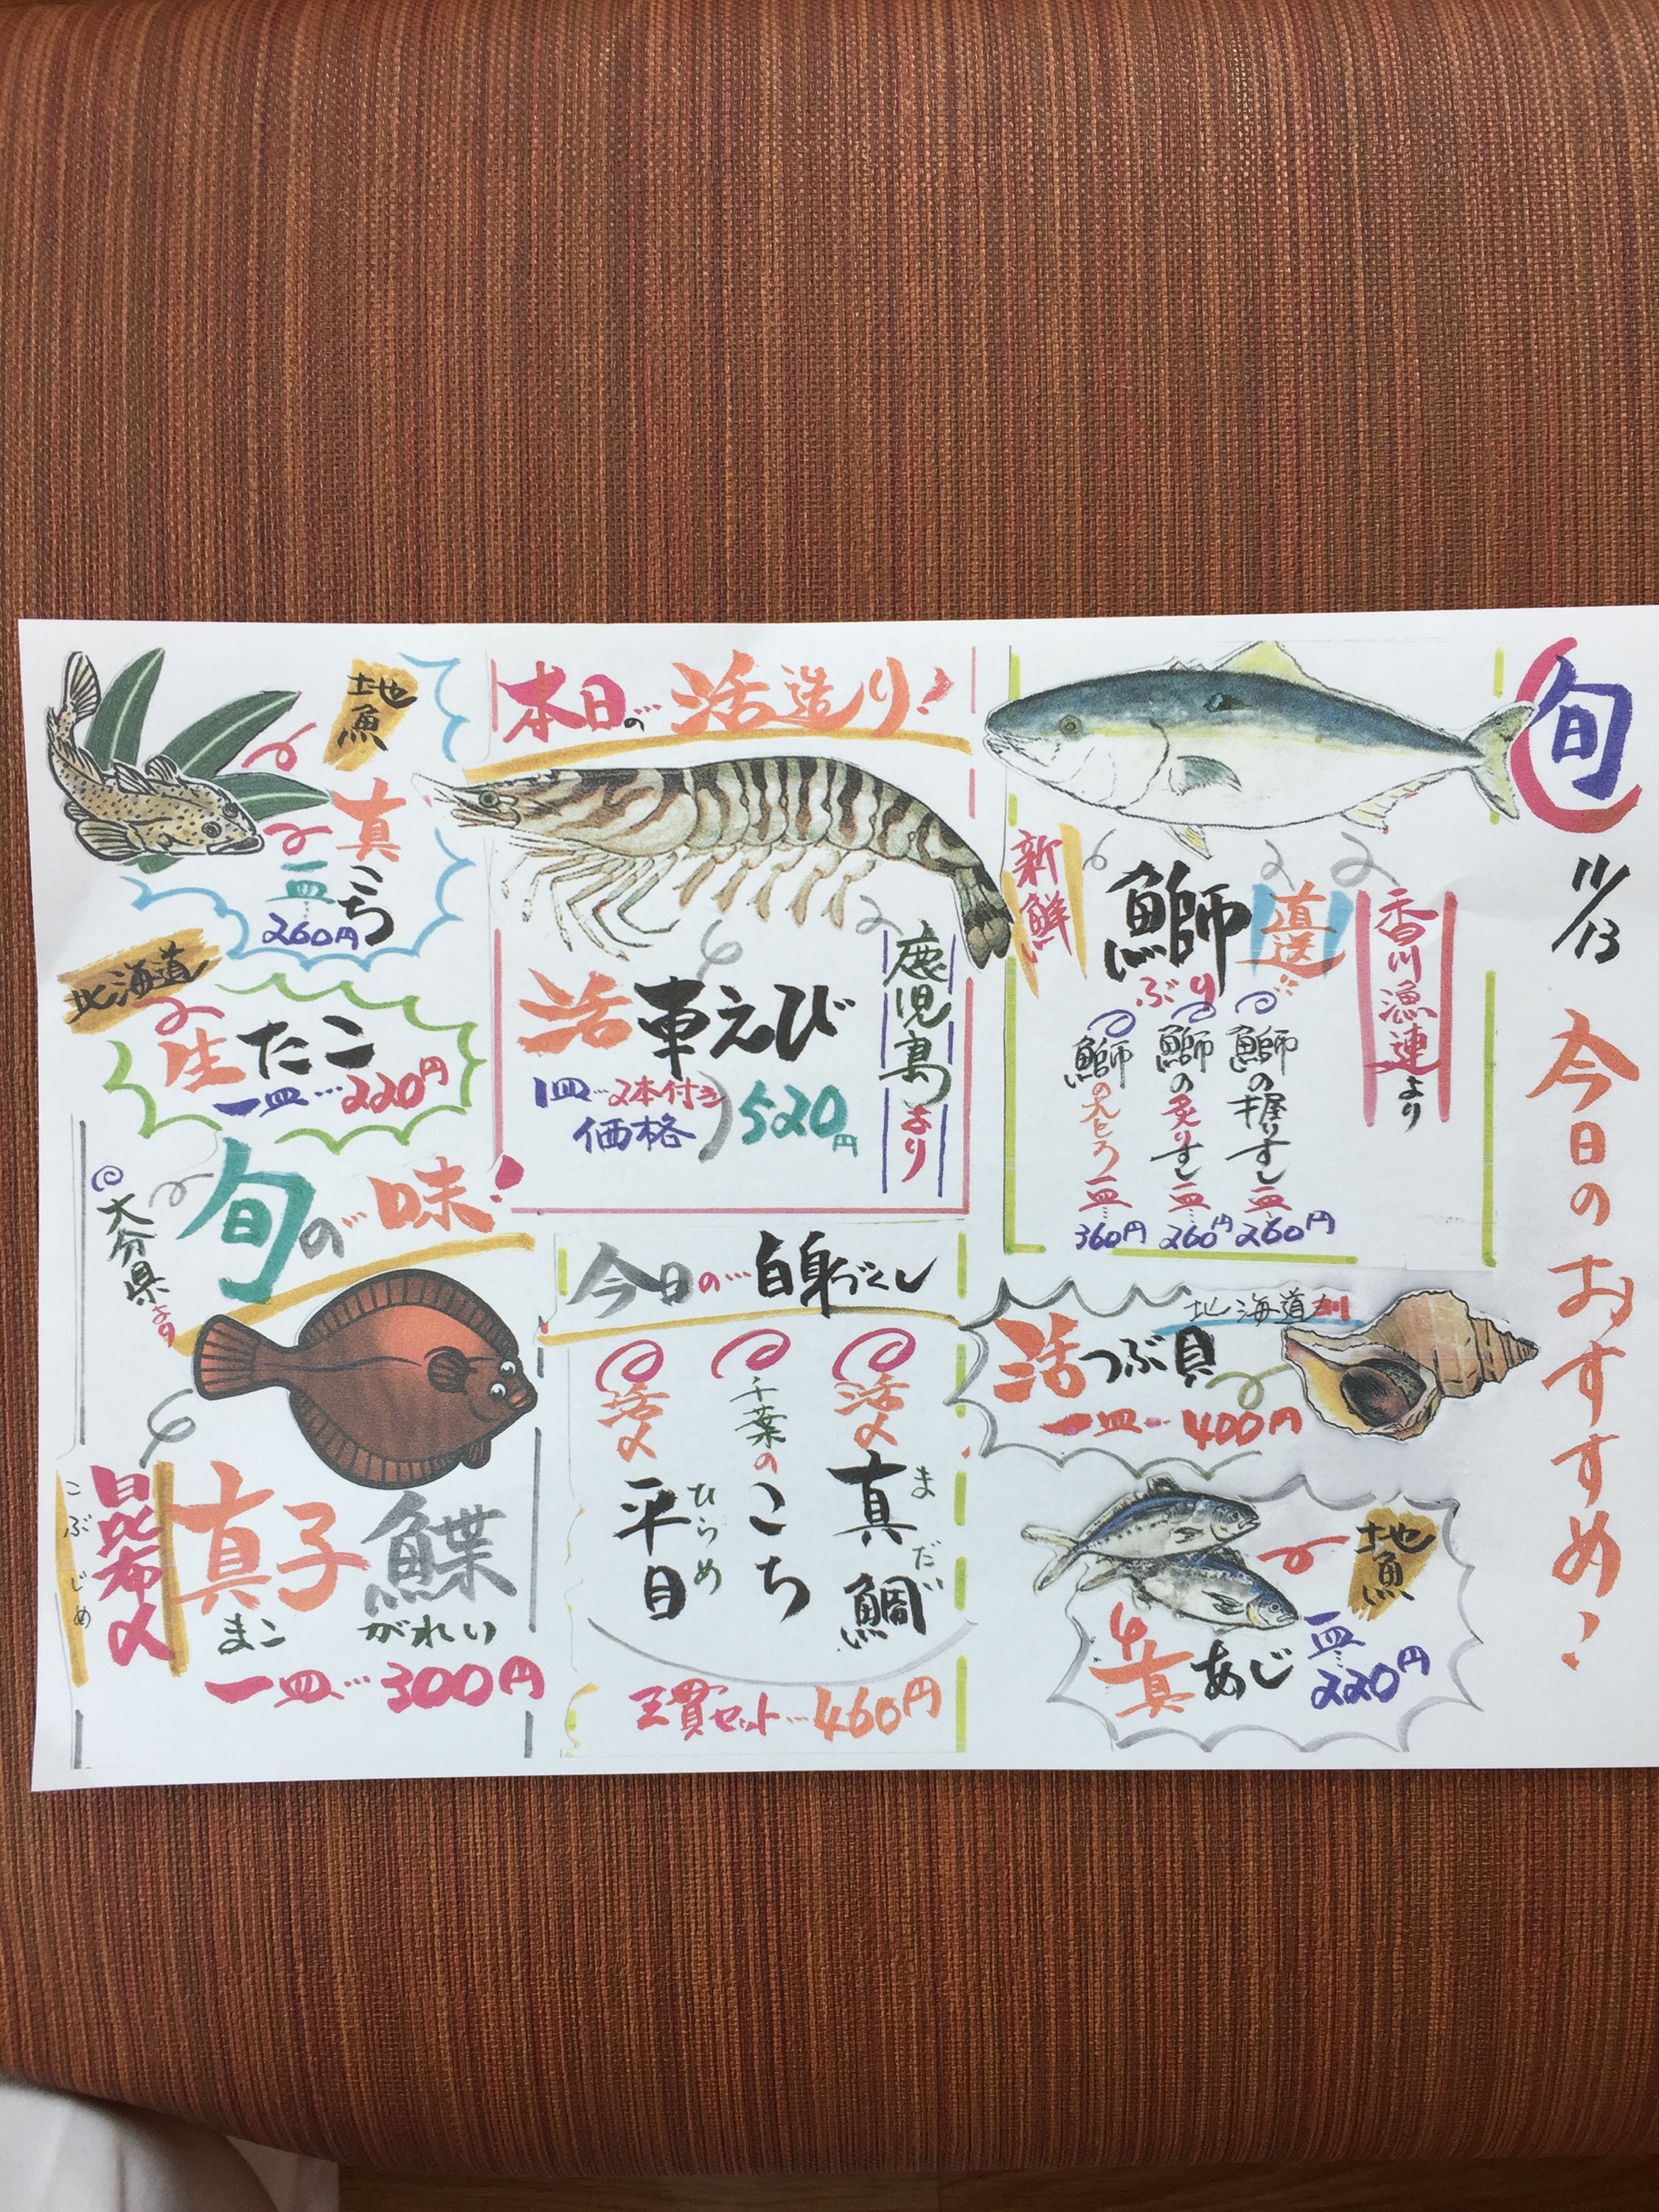 旬
11/13
今日のおすすめ!
香川漁連より
直送!!
鰤
ぶり
新鮮
鰤の握りすし
一皿…
260円
鰤の炙りすし
一皿…
260円
一皿…
360円
北海道
活つぶ貝
一皿… 400円
地魚
真あじ
一皿…
220円
本日の…活造り!
鹿児島より
活車えび
1皿…2本付き
価格
520円
今日の…白身づくし
活〆
真鯛
まだい
千葉の
こち
活〆
平目
ひらめ
三貫セット…460円
地魚
真こち
一皿…
260円
北海道
生たこ
一皿…220円
旬の味!
大分県より
昆布〆
こぶじめ
真子鰈
まこがれい
一皿…300円